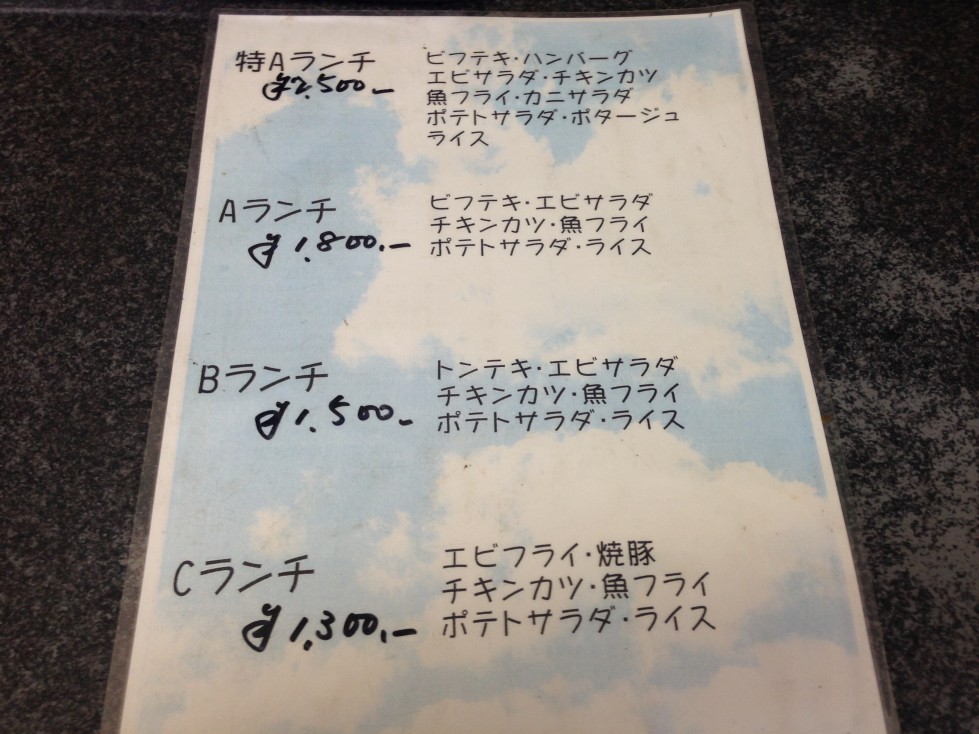 特Aランチ
¥2,500.-
ビフテキ・ハンバーグ
エビサラダ・チキンカツ
魚フライ・カニサラダ
ポテトサラダ・ポタージュ
ライス
Aランチ
¥1,800.-
ビフテキ・エビサラダ
チキンカツ・魚フライ
ポテトサラダ・ライス
Bランチ
¥1,500.-
トンテキ・エビサラダ
チキンカツ・魚フライ
ポテトサラダ・ライス
Cランチ
¥1,300.-
エビフライ・焼豚
チキンカツ・魚フライ
ポテトサラダ・ライス